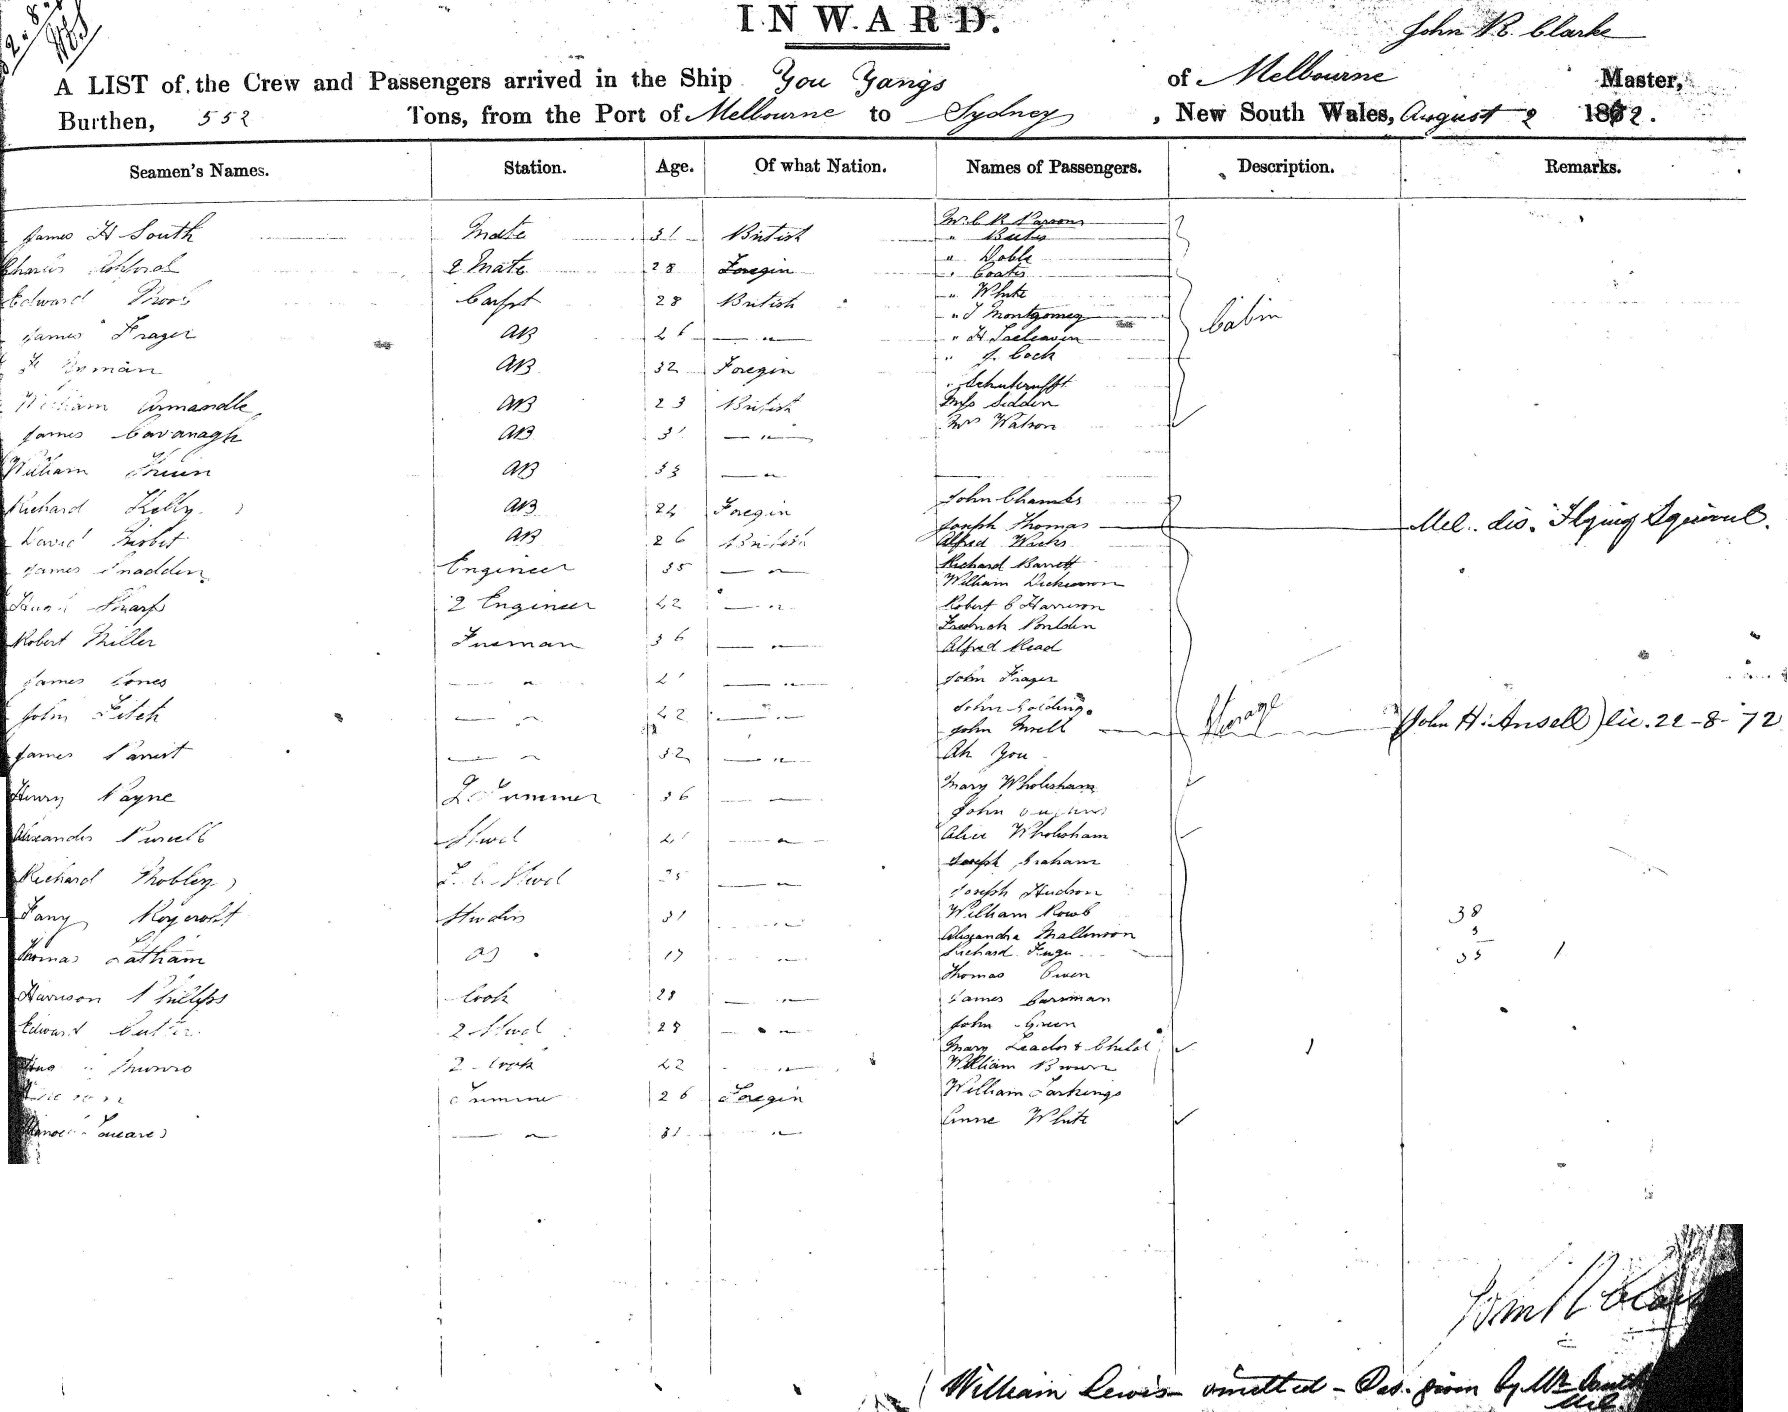 INWARD.
John R. Clarke
A LIST of the Crew and Passengers arrived in the Ship You Yangs of Melbourne Master,
Burthen, 552 Tons, from the Port of Melbourne to Sydney, New South Wales, August 2 1872.
Seamen's Names. Station. Age. Of what Nation. Names of Passengers. Description. Remarks.
James H South Mate 31 British
Charles 2 Mate 28 Foregin
Edward Carpt 28 British
James Frazer AB 26 — " —
AB 32 Foregin
William Armandle AB 23 British
James Cavanagh AB 31 — " —
William AB 33 — "
Richard Kelly AB 24 Foregin
David Nisbet AB 26 British
James Snadden Engineer 35 — "
Hugh Sharp 2 Engineer 42 — "
Robert Miller Fireman 36 — " —
James Jones — " — " —
John Fitch — " 42 — " —
James — " 32 — " —
Henry Payne 36 — " —
Alexander Stwd — " —
Richard Mobley Stwd 35 — "
Fany Roycroft 31 — " —
Thomas Latham 17 — " —
Harrison Phillips Cook 28 — " —
Edward 2 Stwd 28 — " —
Munro 2 Cook 42 — " —
26 Foregin
— " 31 — " —
Mr C R Parsons
" Bates
" Doble
" Coates
" White
" J Montgomery
" H Treleaven
" J. Cock
"
Miss Seddon
Mrs Watson
Cabin
John Chambs
Joseph Thomas Mel. dis. Flying Squirrel.
Alfred Weeks
Richard Barrett
William Dickinson
Robert C Harrison
Fredrick Poulden
Alfred Read
John Frazer
John Golding
John (John H. Ansell) lic. 22-8-72
Ah You
Mary Wholesham
John
Alice Wholesham
Joseph Graham
Joseph Hudson
William Rowb
Alexandra Mallinson
Richard
Thomas Owen
James Carriman
John Green
Mary Leader & Child
William Brown
William Larkings
Anne White
Storage
38
3
35 1
1
John R Clarke
William Lewis omitted – Des. given by Mr South
Mel